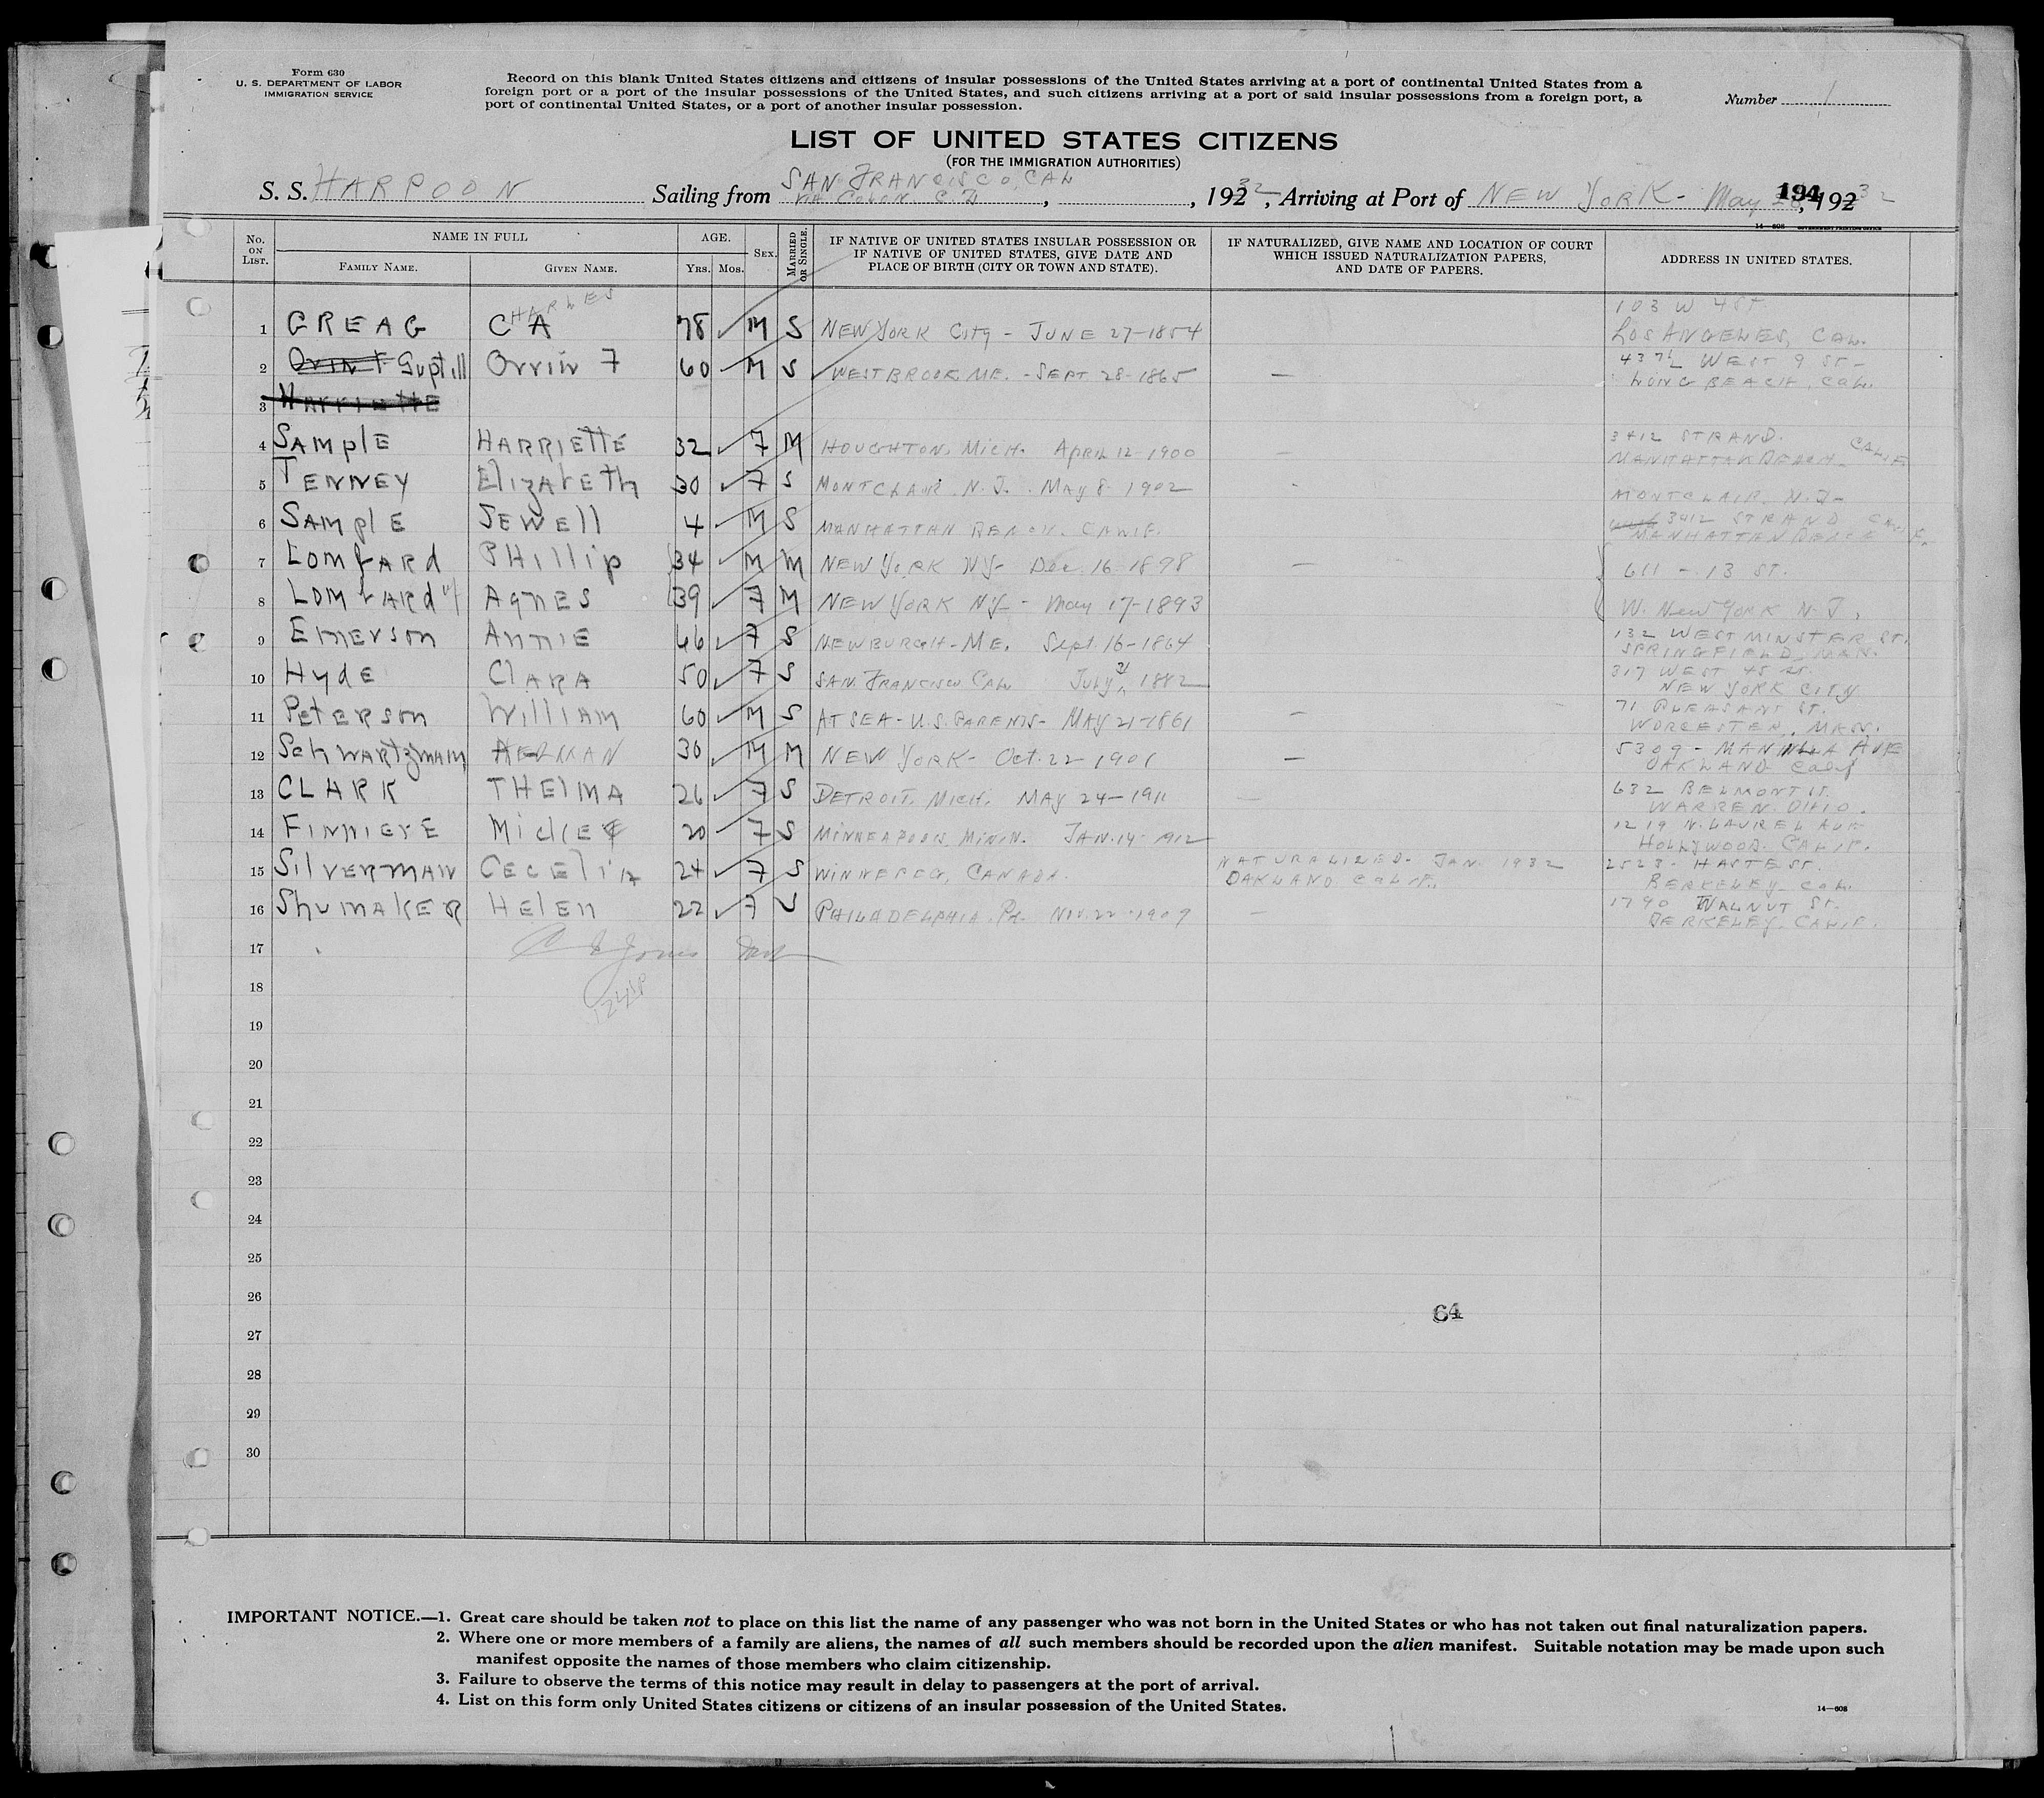 Form 630
U. S. DEPARTMENT OF LABOR
IMMIGRATION SERVICE
Record on this blank United States citizens and citizens of insular possessions of the United States arriving at a port of continental United States from a
foreign port or a port of the insular possessions of the United States, and such citizens arriving at a port of said insular possessions from a foreign port, a
port of continental United States, or a port of another insular possession.
Number 1
LIST OF UNITED STATES CITIZENS
(FOR THE IMMIGRATION AUTHORITIES)
S. S. HARPOON Sailing from SAN FRANCISCO, CAL , 1932, Arriving at Port of NEW YORK - May , 1932
VIA COLON. C.Z.
194
14—608
No. ON LIST.
NAME IN FULL
FAMILY NAME.
GIVEN NAME.
AGE.
YRS. MOS.
SEX.
MARRIED OR SINGLE.
IF NATIVE OF UNITED STATES INSULAR POSSESSION OR
IF NATIVE OF UNITED STATES, GIVE DATE AND
PLACE OF BIRTH (CITY OR TOWN AND STATE).
IF NATURALIZED, GIVE NAME AND LOCATION OF COURT
WHICH ISSUED NATURALIZATION PAPERS,
AND DATE OF PAPERS.
ADDRESS IN UNITED STATES.
CHARLES 103 W 4 ST
1 GREAG C A 78 M S NEW YORK CITY - JUNE 27-1854 LOS ANGELES, CAL.
2 Orin F Guptill Orrin F 60 M S WESTBROOK ME. - SEPT 28-1865 — 437½ WEST 9 ST -
LONG BEACH, CAL.
3 Harriette
4 SAMPLE HARRIETTE 32 F M HOUGHTON, MICH. APRIL 12-1900 — 3412 STRAND.
MANHATTAN BEACH. CALIF
5 TENNEY ElizabETH 30 F S MONTCLAIR. N.J. MAY 8 1902 - MONTCLAIR. N.J-
6 SAMPLE JEWEll 4 M S MANHATTAN BEACH. CALIF. 3412 STRAND CALIF.
MANHATTAN BEACH
7 LOMbARd PHillip 34 M M NEW YORK NY- Dec. 16-1898 — 611 - 13 ST.
8 LOMbARd AgNES 39 F M NEW YORK NY - May 17-1893 W. NEW YORK N.J.
9 EMErson ANNIE 66 F S NEWBURGH - ME. Sept. 16-1864 132 WESTMINSTER ST.
SPRINGFIELD, MASS.
10 HydE ClARA 50 F S SAN FRANCISCO CAL July 31, 1882 317 WEST 45 ST.
NEW YORK CITY
11 PETERSON WilliAM 60 M S AT SEA - U.S. PARENTS - MAY 21-1861 — 71 PLEASANT ST.
WORCESTER, MASS.
12 SchwARtzMAN HERMAN 30 M M NEW YORK - Oct. 22 1901 — 5309 - MANILA AVE
OAKLAND Calif
13 CLARK THElMA 26 F S DETROIT, MICH. MAY 24-1911 — 632 BELMONT ST.
WARREN. OHIO.
14 FINNIEVE MickEy 20 F S MINNEAPOLIS, MINN. JAN. 14-1912 1219 N. LAUREL AVE
HOLLYWOOD. CALIF.
15 SilVERMAN CECEliA 24 F S WINNEPEG, CANADA. NATURALIZED - JAN. 1932 2523 - HASTE ST.
OAKLAND CALIF. BERKELEY - CAL.
16 ShuMAKER HElEN 22 F S PHILADELPHIA. PA. NOV. 22-1909 — 1790 WALNUT ST.
BERKELEY. CALIF.
17 Jones
18
19
20
21
22
23
24
25
26
64
27
28
29
30
IMPORTANT NOTICE.—1. Great care should be taken not to place on this list the name of any passenger who was not born in the United States or who has not taken out final naturalization papers.
2. Where one or more members of a family are aliens, the names of all such members should be recorded upon the alien manifest. Suitable notation may be made upon such
manifest opposite the names of those members who claim citizenship.
3. Failure to observe the terms of this notice may result in delay to passengers at the port of arrival.
4. List on this form only United States citizens or citizens of an insular possession of the United States.
14—608